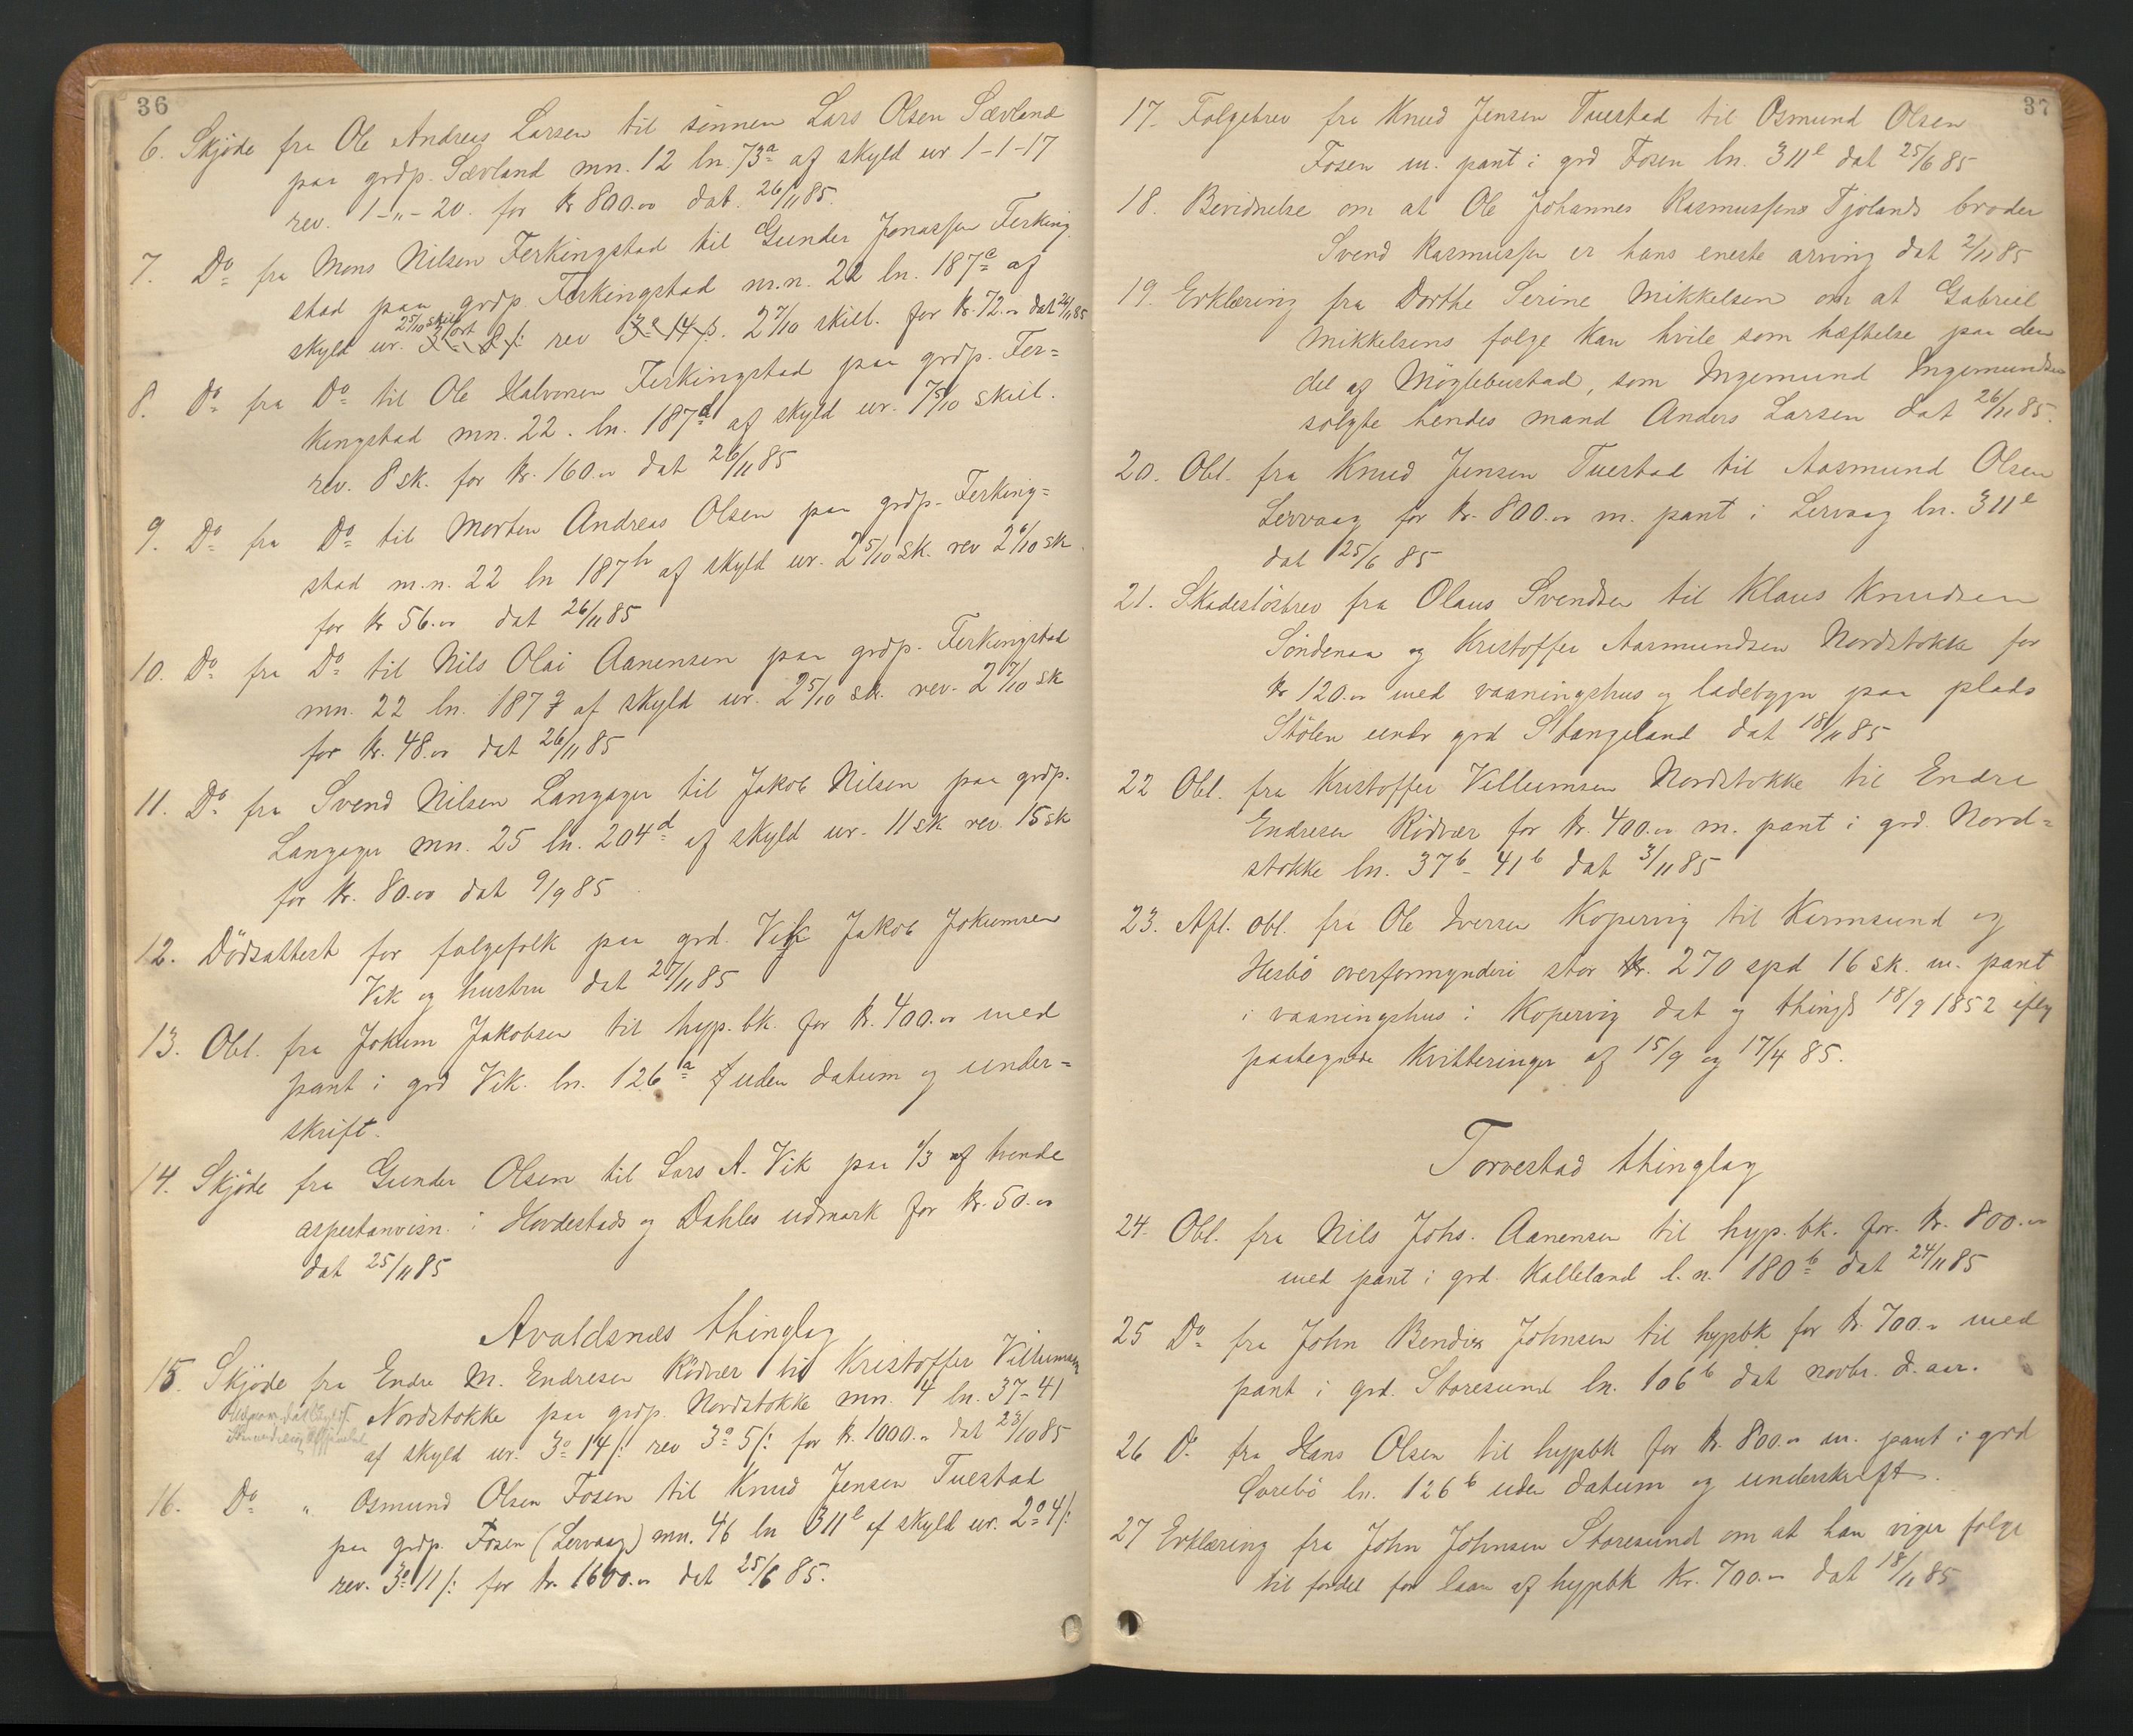 36
6. Skjöde fra Ole Andreas Larsen til sönnen Lars Olsen Sævland
paa grdp. Sævland mn. 12 ln. 73a af skyld ur 1-1-17
rev. 1-"-20. for kr 800.00 dat. 26/11 85.
7. Do fra Mons Nilsen Ferkingstad til Gunder Jonassen Ferking
stad paa grdp. Ferkingstad m.n. 22 ln. 187e af
25/10 skil
skyld ur. 3 ort 8 /: rev 3o 14 /: 2 7/10 skill. for kr. 72.00 dat 26/11 85
8. Do fra Do til Ole Halvorsen Ferkingstad paa grdp. Fer=
kingstad mn. 22. ln. 187d af skyld ur. 7 5/10 skil.
rev. 8 sk. for kr. 160.00 dat 26/11 85
9. Do fra Do til Morten Andreas Olsen paa grdp. Ferking=
stad m.n. 22 ln 187h af skyld ur. 2 5/10 sk. rev 2 6/10 sk.
for kr 56.00 dat 26/11 85
10. Do fra Do til Nils Olai Aanensen paa grdp. Ferkingstad
mn. 22 ln. 187 g af skyld ur. 2 5/10 sk. rev. 2 7/10 sk
for kr. 48.00 dat 26/11 85
11. Do fra Svend Nilsen Langager til Jakob Nilsen paa grdp.
Langager mn. 25 ln. 204d af skyld ur. 11 sk rev. 15 sk
for kr. 80.00 dat 9/9 85
12. Dödsattest for folgefolk paa grd. Vik Jakob Jokumsen
Vik og hustru dat 27/11 85
13. Obl. fra Jokum Jakobsen til hyp. bk. for kr. 400.00 med
pant i grd Vik. ln. 126 a uden datum og under=
skrift.
14. Skjöde fra Gunder Olsen til Lars A. Vik paa 1/3 af hende
i Hovdestads og Dahles udmark for kr. 50.00
dat 25/11 85
Avaldsnæs thinglag
15. Skjöde fra Endre M. Endresen Rödvær til Kristoffer Villumsen
Nordstokke paa grdp. Nordstokke mn. 14 ln. 37-41
af skyld ur. 3o 14 /: rev 3o 5 /: for kr. 1000.00 dat 23/10 85
16. Do " Osmund Olsen Fosen til Knud Jensen Tuestad
paa grdp. Fosen (Lervaag) mn. 46 ln 311e af skyld ur. 2o 4 /:
rev. 3o 11 /: for kr. 1600.00 dat 25/6 85.
37
17. Folgebrev fra Knud Jensen Tuestad til Osmund Olsen
Fosen m. pant i grd Fosen ln. 311e dat 25/6 85
18. Bevidnelse om at Ole Johannes Rasmussens Tjolands broder
Svend Rasmussen er hans eneste arving dat 2/11 85
19. Erklæring fra Dorthe Serine Mikkelsen om at Gabriel
Mikkelsens folge kan hvile som hæftelse paa den
del af Möglebustad, som Ingemund Ingemundsen
solgte hendes mand Anders Larsen dat 26/11 85.
20. Obl. fra Knud Jensen Tuestad til Aasmund Olsen
Lervaag for kr. 800.00 m. pant i Lervaag ln. 311e
dat 25/6 85
21. Skadeslösbrev fra Olaus Svendsen til Klaus Knudsen
Söndenaa og Kristoffer Aasmundsen Nordstokke for
kr 120.00 med vaaningshus og ladebygn paa plads
Stölen under grd Stangeland dat 18/11 85
22 Obl. fra Kristoffer Villumsen Nordstokke til Endre
Endresen Rödvær for kr. 400.00 m. pant i grd. Nord=
stokke ln. 37b - 41b dat 3/11 85
23. Afl. obl. fra Ole Iversen Kopervig til Karmsund og
Hesbö overformynderi stor kr. 270 spd 16 sk. m. pant
i vaaningshus i Kopervig dat og thingl 18/9 1852 iflg
paategnede kvitteringer af 15/9 og 17/4 85.
Torvestad thinglag
24. Obl. fra Nils Johs. Aanensen til hyp. bk. for kr. 800.00
med pant i grd. Kalleland l. n. 180b dat 24/11 85
25 Do fra John Bendix Johnsen til hypbk for kr. 700.00 med
pant i grd. Storesund ln. 106b dat novbr. d. aar.
26 D. fra Hans Olsen til hypbk for kr. 800.00 m. pant i grd
Sörebö ln. 126b uden datum og underskrift.
27 Erklæring fra John Johnsen Storesund om at han viger folge
til fordel for laan af hypbk kr. 700.00 dat 18/11 85